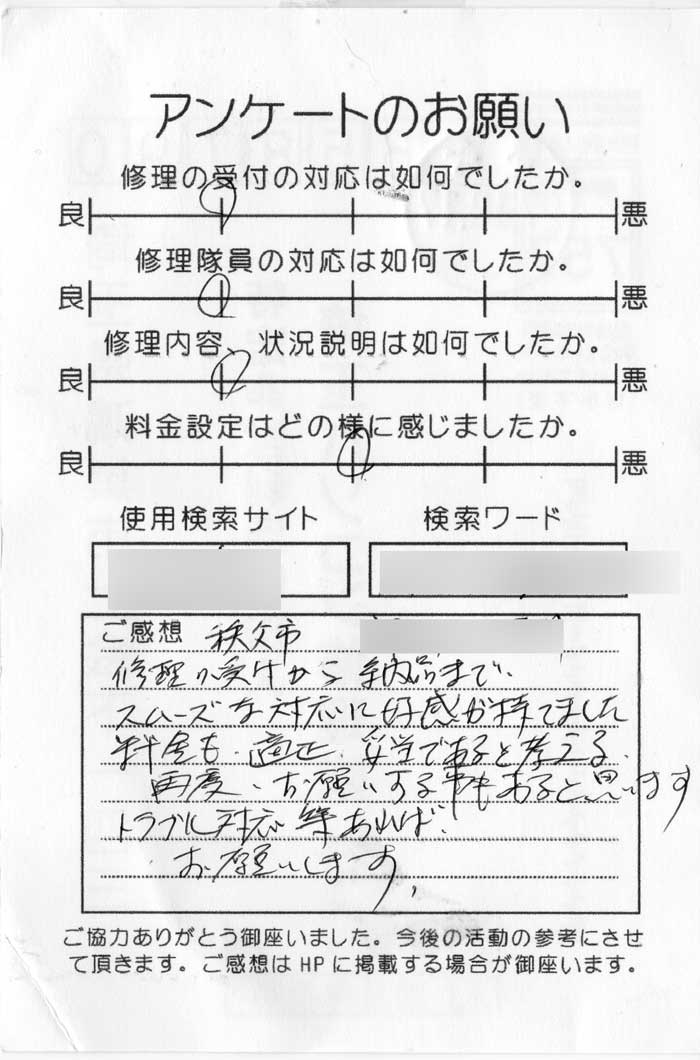 アンケートのお願い
修理の受付の対応は如何でしたか。
良 悪
修理隊員の対応は如何でしたか。
良 悪
修理内容、状況説明は如何でしたか。
良 悪
料金設定はどの様に感じましたか。
良 悪
使用検索サイト 検索ワード
ご感想 秩父市
修理の受付から納品まで、
スムーズな対応に好感が持てました
料金も、適正、妥当であると考える、
再度、お願いする事もあると思います
トラブル対応等あれば、
お願いします。
ご協力ありがとう御座いました。今後の活動の参考にさせ
て頂きます。ご感想はHPに掲載する場合が御座います。